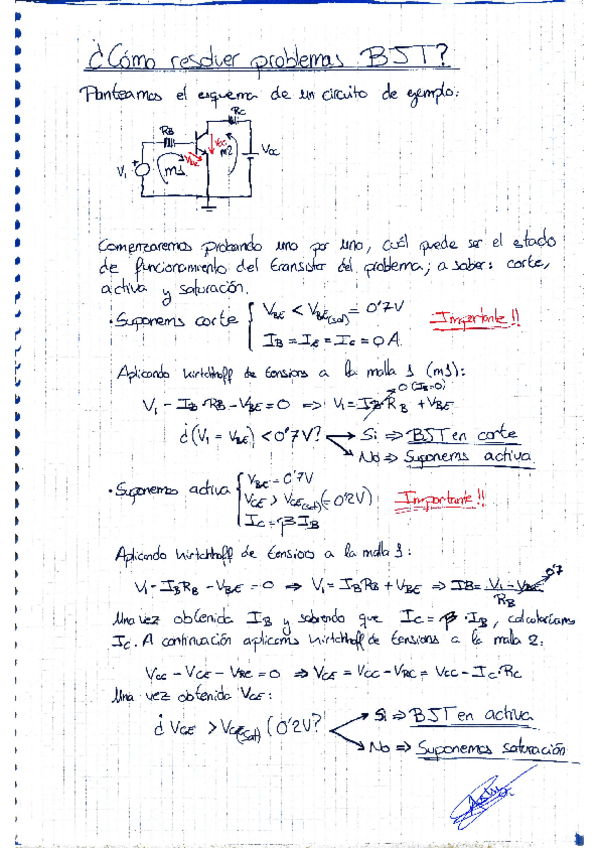 ¿Cómo resolver problemas BJT?
Planteamos el esquema de un circuito de ejemplo:
RC
RB
VCE
m2
VCC
VBE
V1 + m1
Comenzaremos probando uno por uno, cuál puede ser el estado
de funcionamiento del transistor del problema; a saber: corte,
activa y saturación.
· Suponems corte { VBE < VBE(sat) = 0'7V
IB = IE = IC = 0A.
Importante!!
Aplicando kirtchhoff de tensions a la malla 1 (m1):
0 (IB=0)
V1 - IB·RB - VBE = 0 => V1 = IB·RB + VBE
¿(V1 = VBE) < 0'7V? → Si => BJT en corte
→ No => Suponems activa
· Suponemos activa { VBE = 0'7V
VCE > VCE(sat) (= 0'2V)
IC = β IB
Importante!!
Aplicando kirtchhoff de tensions a la malla 1:
V1 - IB RB - VBE = 0 => V1 = IB RB + VBE => IB = V1 - VBE / RB
0'7
Una vez obtenida IB y sabiendo que IC = β · IB, calculariams
IC. A continuación aplicams kirtchhoff de tensions a la malla 2:
VCC - VCE - VRC = 0 => VCE = VCC - VRC = VCC - IC·RC
Una vez obtenida VCE:
¿VCE > VCE(sat) (0'2V? → Si => BJT en activa
→ No => Suponemos saturación